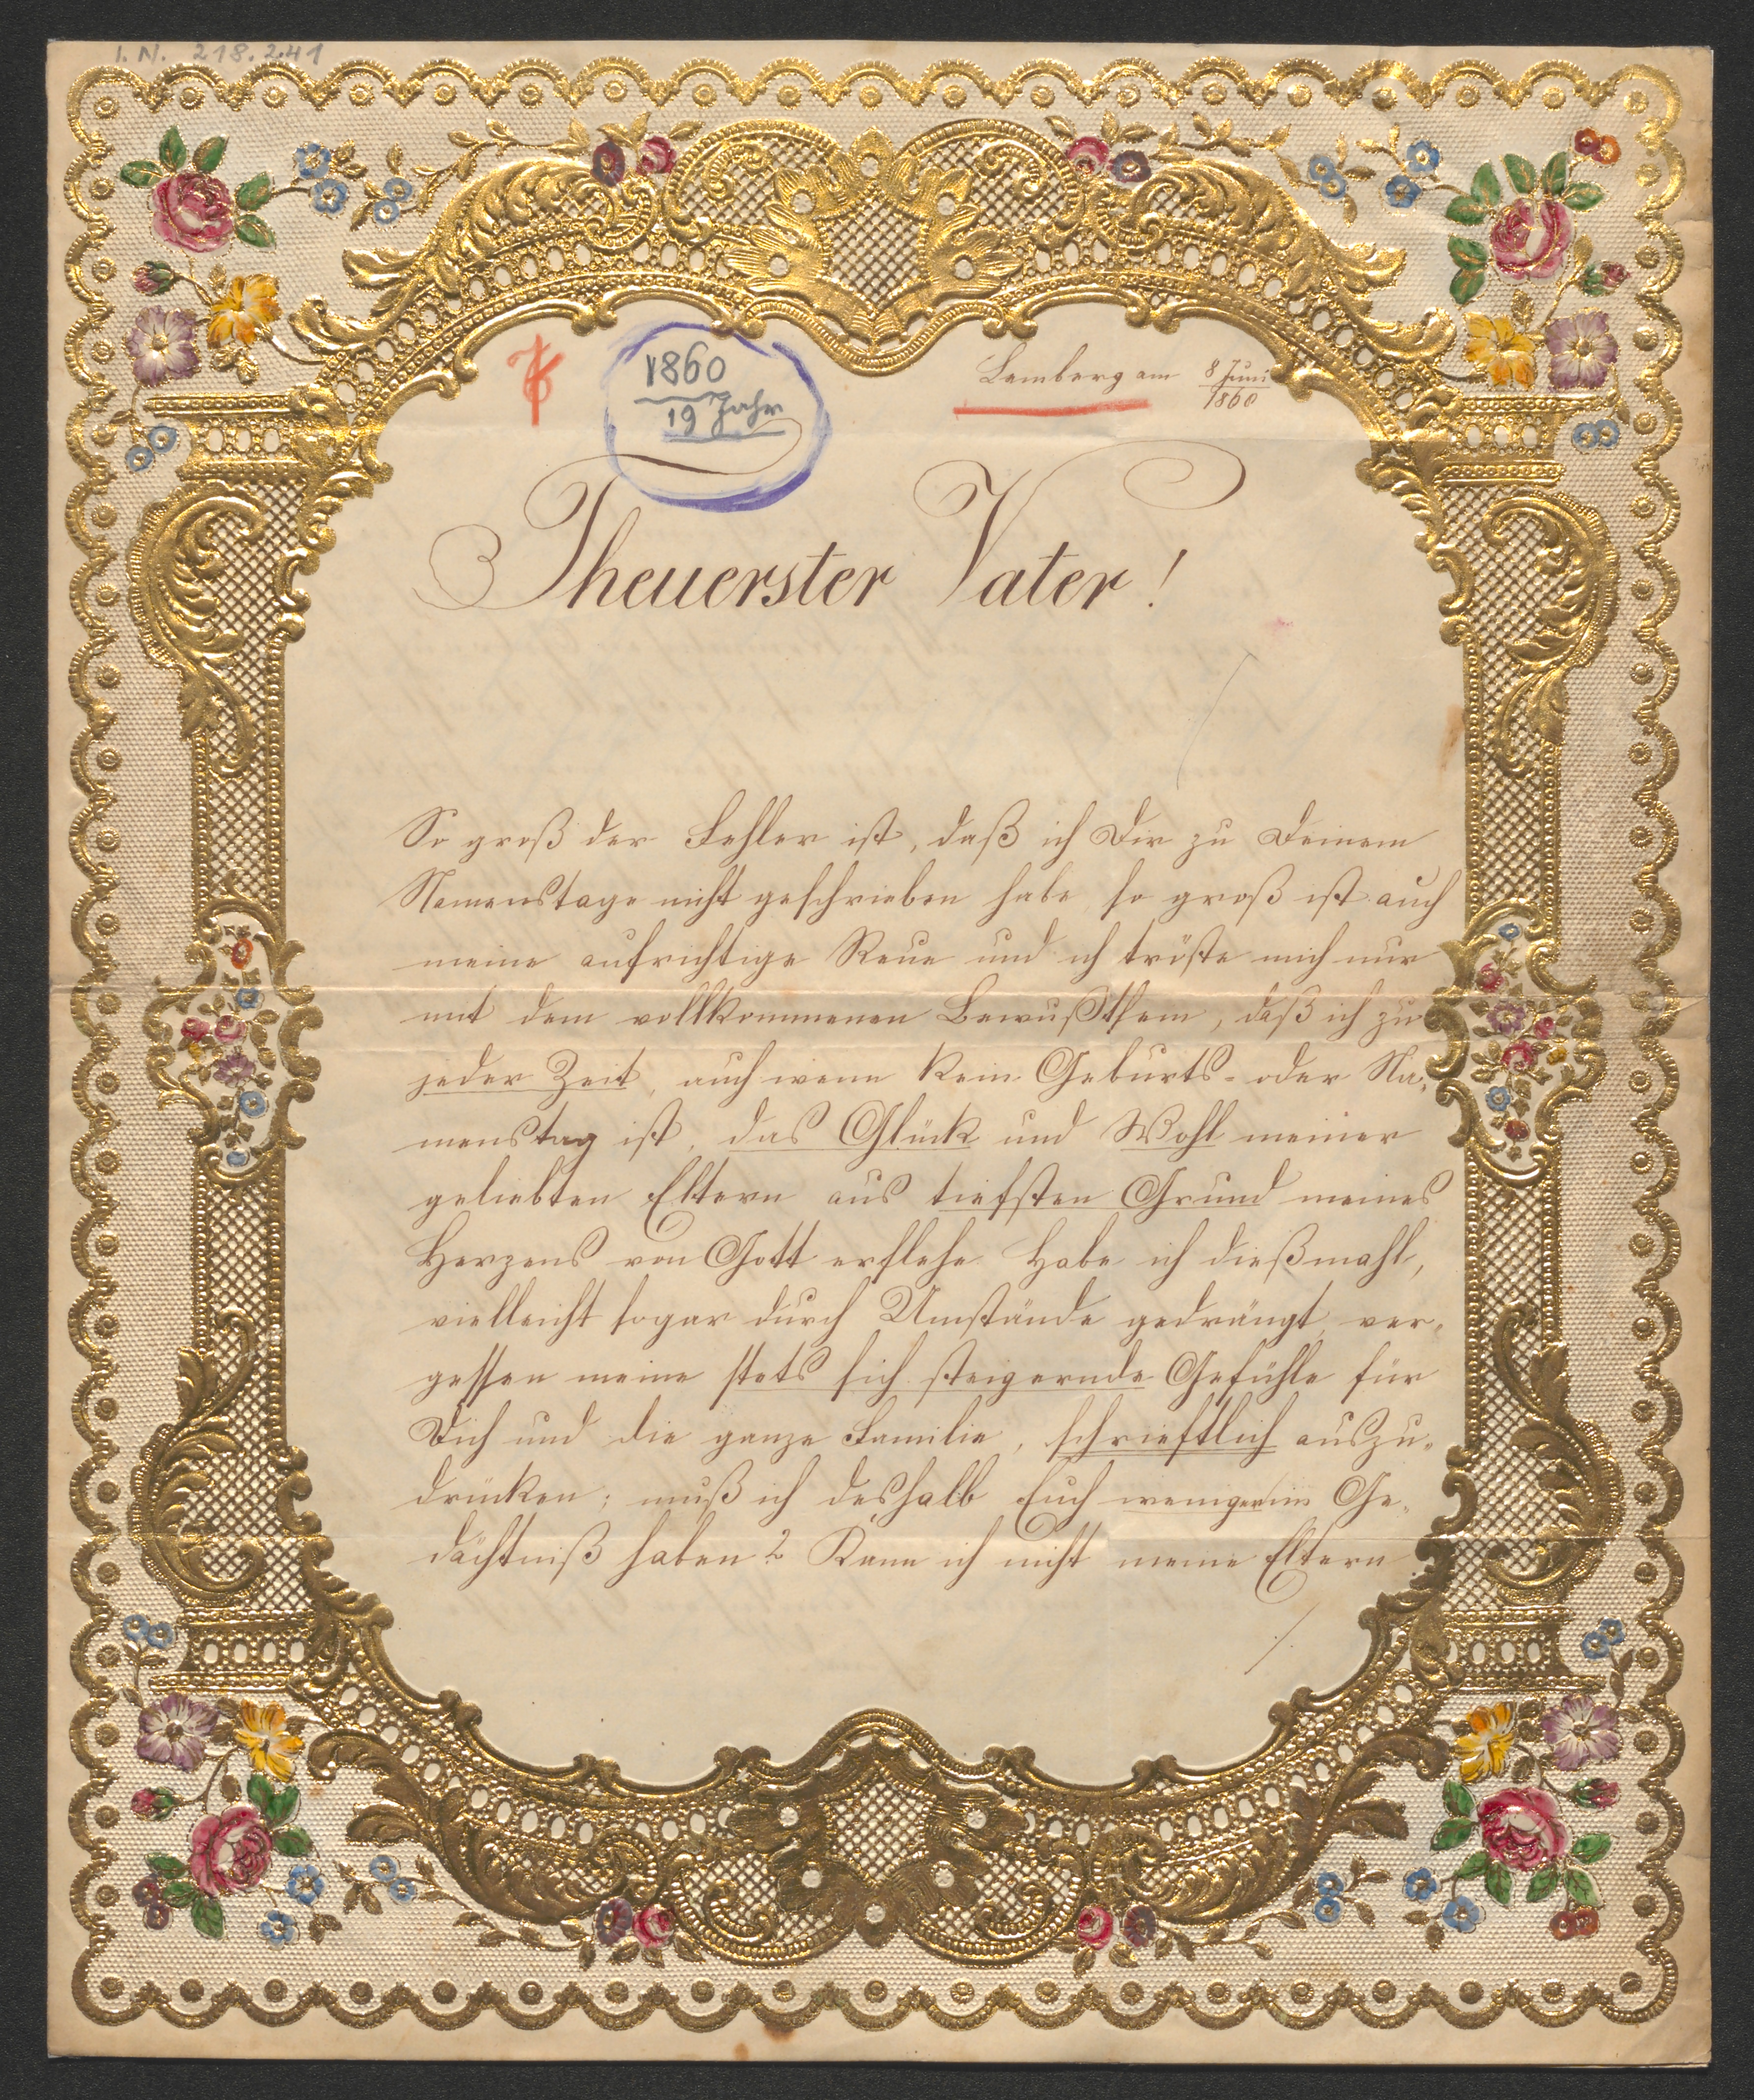 I. N. 218.241
1860
19 Jahr
Lemberg am 8 Juni
1860
Theuerster Vater!
So groß der Fehler ist, daß ich Dir zu Deinem
Namenstage nicht geschrieben habe, so groß ist auch
meine aufrichtige Reue und ich tröste mich nur
mit dem vollkommenen Bewußtsein, daß ich zu
jeder Zeit, auch wenn kein Geburts- oder Na-
menstag ist, das Glück und Wohl meiner
geliebten Eltern aus tiefsten Grund meines
Herzens von Gott erflehe. Habe ich dießmahl,
vielleicht sogar durch Umstände gedrängt, ver-
gessen meine stets sich steigernde Gefühle für
Dich und die ganze Familie, schrieftlich auszu-
drücken; muß ich deshalb Euch weniger im Ge-
dächtniß haben? Kann ich nicht meine Eltern